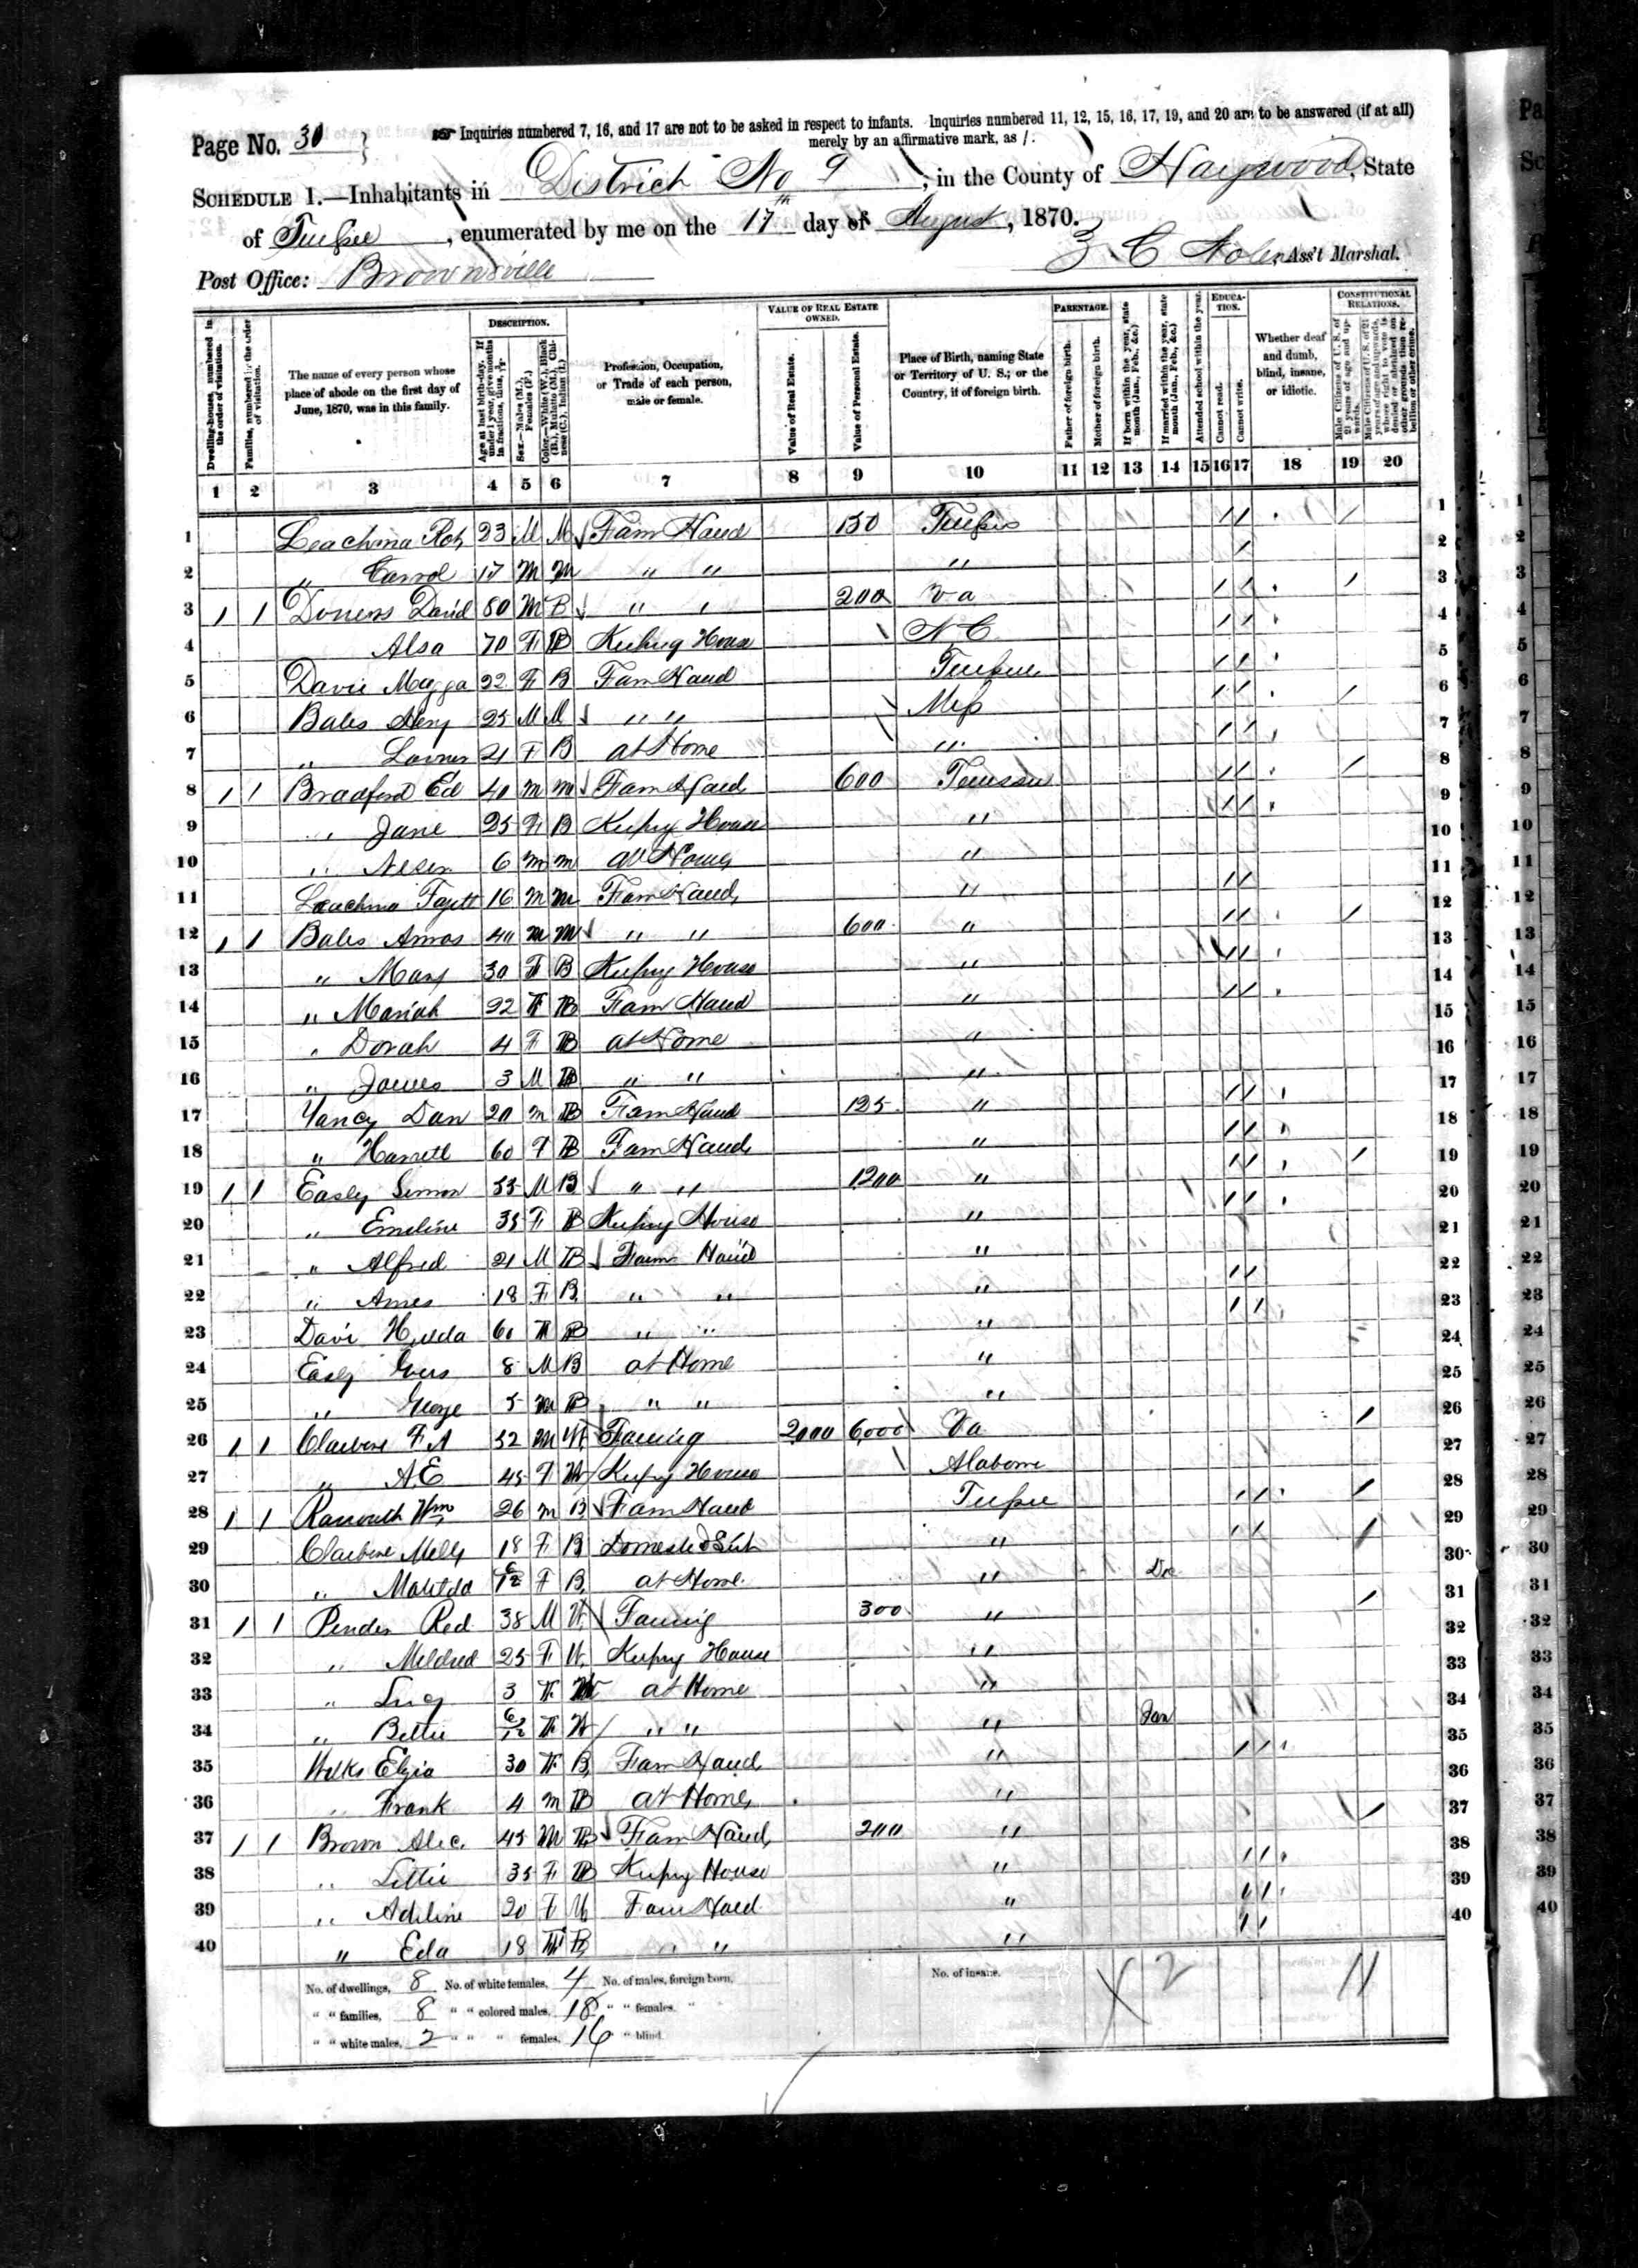 Page No. 30
Inquiries numbered 7, 16, and 17 are not to be asked in respect to infants. Inquiries numbered 11, 12, 15, 16, 17, 19, and 20 are to be answered (if at all)
merely by an affirmative mark, as /.
SCHEDULE 1.—Inhabitants in District No 9, in the County of Haywood, State
of, enumerated by me on the 17th day of August, 1870.
Post Office: Brownsville
Z C Nolen, Ass't Marshal.
DESCRIPTION.
VALUE OF REAL ESTATE OWNED.
PARENTAGE.
EDUCATION.
CONSTITUTIONAL RELATIONS.
Dwelling-houses, numbered in the order of visitation.
Families, numbered in the order of visitation.
The name of every person whose place of abode on the first day of June, 1870, was in this family.
Age at last birth-day. If under 1 year, give months in fractions, thus, 3/12
Sex.—Males (M.), Females (F.)
Color.—White (W.), Black (B.), Mulatto (M.), Chinese (C.), Indian (I.)
Profession, Occupation, or Trade of each person, male or female.
Value of Real Estate.
Value of Personal Estate.
Place of Birth, naming State or Territory of U. S.; or the Country, if of foreign birth.
Father of foreign birth.
Mother of foreign birth.
If born within the year, state month (Jan., Feb., &c.)
If married within the year, state month (Jan., Feb., &c.)
Attended school within the year.
Cannot read.
Cannot write.
Whether deaf and dumb, blind, insane, or idiotic.
Male Citizens of U. S. of 21 years of age and upwards.
Male Citizens of U. S. of 21 years of age and upwards, where right to vote is denied or abridged on other grounds than rebellion or other crime.
1 2 3 4 5 6 7 8 9 10 11 12 13 14 15 16 17 18 19 20
1 Leachma Rob 23 M M Farm Hand 150 / / / 1
2 " Carrol 17 M M " " " / 2
3 1 1 David 80 M B " " 200 Va / / / 3
4 Alsa 70 F B Keeping House N C / / 4
5 Davie 22 F B Farm Hand / / 5
6 Bales Henry 25 M M " " Miss / / / 6
7 " 21 F B at Home " / / 7
8 1 1 Bradford Ed 40 M M Farm Hand 600 / / / 8
9 " Jane 25 F B Keeping House " / / 9
10 " Nelson 6 M M at Home " 10
11 Leachma Fayett 16 M M Farm Hand " / / 11
12 1 1 Bales Amos 40 M M " " 600 " / / / 12
13 " Mary 30 F B Keeping House " / / 13
14 " Mariah 22 F B Farm Hand " / / 14
15 " Dorah 4 F B at Home " 15
16 " James 3 M B " " " 16
17 Yancy Dan 20 M B Farm Hand 125 " / / 17
18 " Harrett 60 F B Farm Hand " / / 18
19 1 1 Easley Simon 35 M B " " 1200 " / / / 19
20 " Emeline 35 F B Keeping House " / / 20
21 " Alfred 21 M B Farm Hand " 21
22 " 18 F B " " " / / 22
23 Davi Hulda 60 F B " " " / / 23
24 Easly 8 M B at Home " 24
25 " George 5 M B " " " 25
26 1 1 Claibore F A 52 M W Farming 2000 6000 Va / 26
27 " A E 45 F W Keeping House Alabama 27
28 1 1 Wm 26 M B Farm Hand / / / 28
29 Claibore Melly 18 F B " / / / 29
30 " Matilda F B at Home " Dec 30
31 1 1 Pender Red 38 M W Farming 300 " / 31
32 " Mildred 25 F W Keeping House " 32
33 " Lucy 3 F W at Home " 33
34 " Bettie 6/12 F W " " " Jan 34
35 Wilks 30 F B Farm Hand " / / 35
36 " Frank 4 M B at Home " 36
37 1 1 Brown Alec 45 M B Farm Hand 200 " / 37
38 " Lettie 35 F B Keeping House " / / 38
39 " Adeline 20 F M Farm Hand " / / 39
40 " Eda 18 F B " " " / / 40
No. of dwellings, 8 No. of white females, 4 No. of males, foreign born, No. of insane.
" " families, 8 " " colored males, 18 " " females, "
" " white males, 2 " " " females, 16 " blind.
X 2 11